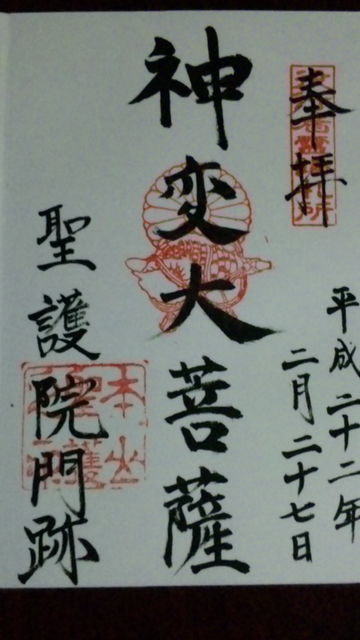 奉拝
平成二十二年
二月二十七日
神変大菩薩
聖護院門跡